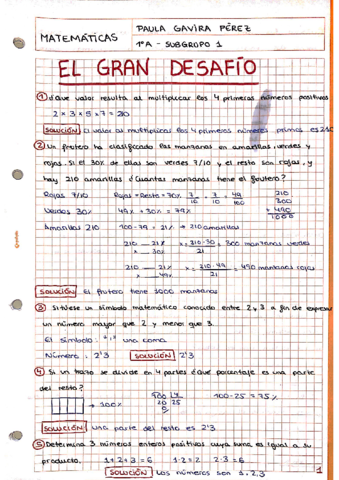 MATEMÁTICAS
PAULA GAVIRA PÉREZ
1ºA - SUBGRUPO 1
EL GRAN DESAFÍO
① ¿Que valor resulta al multiplicar los 4 primeros números positivos
2 x 3 x 5 x 7 = 210
SOLUCIÓN El valor al multiplicar los 4 primeros números primos es 210
② Un frutero ha clasificado las manzanas en amarillas, verdes y
rojas. Si el 30% de ellas son verdes 7/10 y el resto son rojas, y
hay 210 amarillas ¿Cuantas manzanas tiene el frutero?
Rojas 7/10 Rojas = Resto = 70% 7/10 · 7/10 = 49/100
Verdes 30% 49% + 30% = 79%
Amarillas 210 100 - 79 = 21% → 210 amarillas
210
300
+ 490
1000
210 — 21% x = 210·30/21 = 300 manzanas verdes
x — 30%
210 — 21% x = 210·49/21 = 490 manzanas rojas
x — 49%
SOLUCIÓN El frutero tiene 1000 manzanas
③ Sitúese un símbolo matemático conocido entre 2 y 3 a fin de expresar
un número mayor que 2 y menor que 3.
El símbolo: "," una coma
Número: 2'3 SOLUCIÓN 2'3
④ Si un trazo se divide en 4 partes ¿Que porcentaje es una parte
del resto?
→ 100% 100 4 100 - 25 = 75%
20 25
0
SOLUCIÓN Una parte del resto es 2'3
⑤ Determina 3 números enteros positivos cuya suma es igual a su
producto. 1+2+3=6 1·2=2 2·3=6
SOLUCIÓN Los números son 1, 2, 3
1